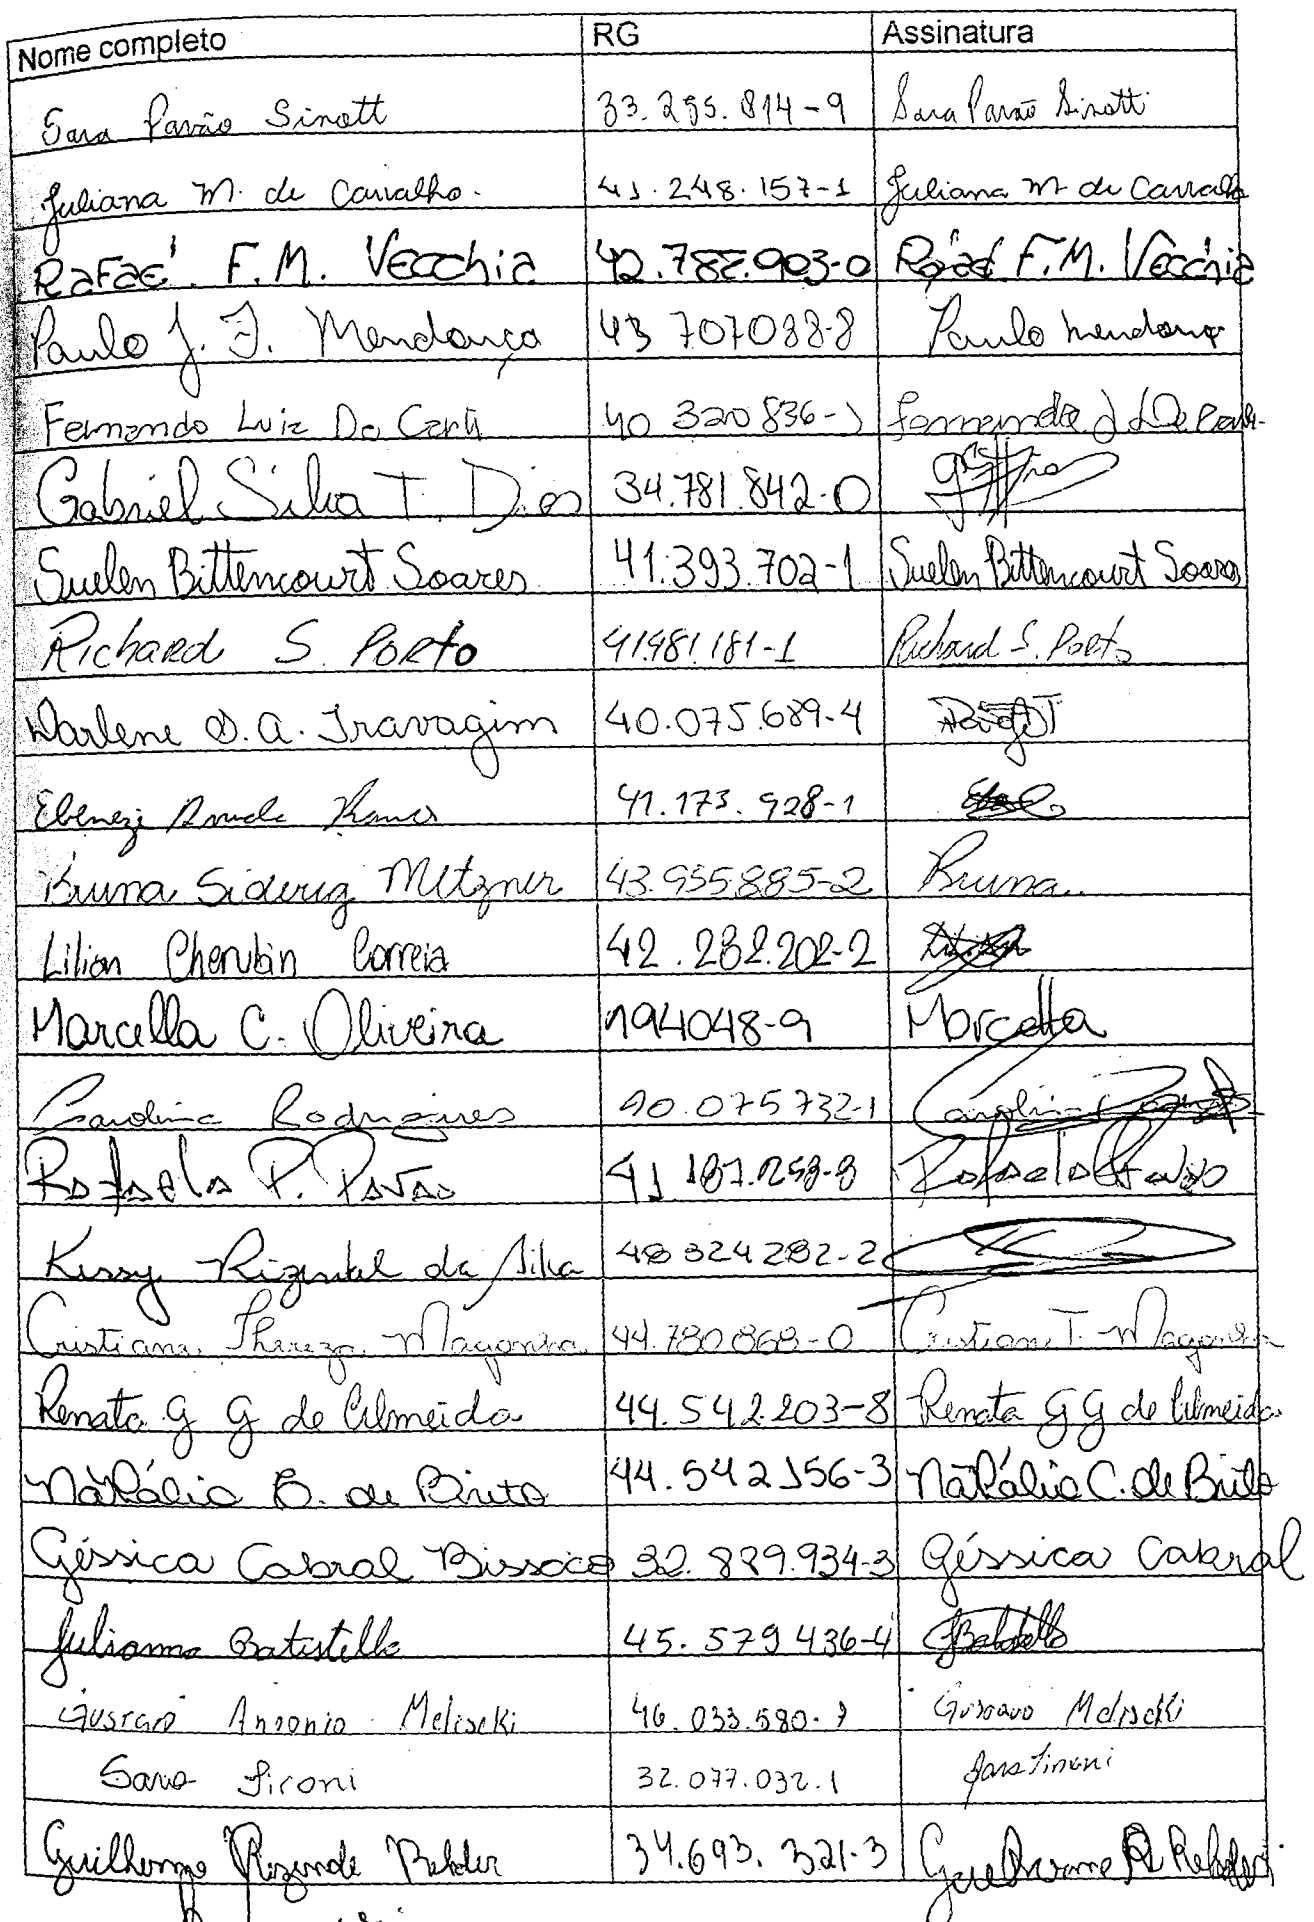 Nome completo RG Assinatura
Sara Pavão Sinott 33.295.814-9 Sara Pavão Sinotti
Juliana M. de Carvalho. 41.248.157-1 Juliana M de Carvalho
Rafael F.M. Vecchia 42.782.903-0 Rafael F.M. Vecchia
Paulo J. J. Mendonça 43 707088-8 Paulo Mendonça
Fernando Luiz De Carli 40 320 836-1 Fernando
Gabriel Silva T. Dias 34.781.842-0
Suelen Bittencourt Soares 41.393.702-1 Suelen Bittencourt Soares
Richard S. Porto 41981181-1 Richard S. Porto
Darlene D.A. Travagim 40.075.689-4
Ebeneze 41.173.928-1
Bruna Siderig Metzner 43.955.885-2 Bruna
Lilian Cherubin Correia 42.282.202-2
Marcella C. Oliveira 194048-9 Marcella
Carolina Rodrigues 40.075732-1 Carolina
Rafaela P. Pavão 41 187.258-8 Rafaela Pavão
Kessy da Silva 48 324 282-2
Cristiana Thereza Maganha 44.780868-0 Cristiana T. Maganha
Renata G G de Almeida 44.542.203-8 Renata G G de Almeida
Natália C. de Brito 44.542156-3 Natália C. de Brito
Géssica Cabral Bissoco 32.889.934-3 Géssica Cabral
Julianna Batistella 45.579436-4 JBatistella
Gustavo Antonio Meliscki 46.033.580-7 Gustavo Meliscki
Sara Sironi 32.077.032.1 Sara Sironi
Guilherme Rezende Rehder 34.693.321-3 Guilherme R Rehder